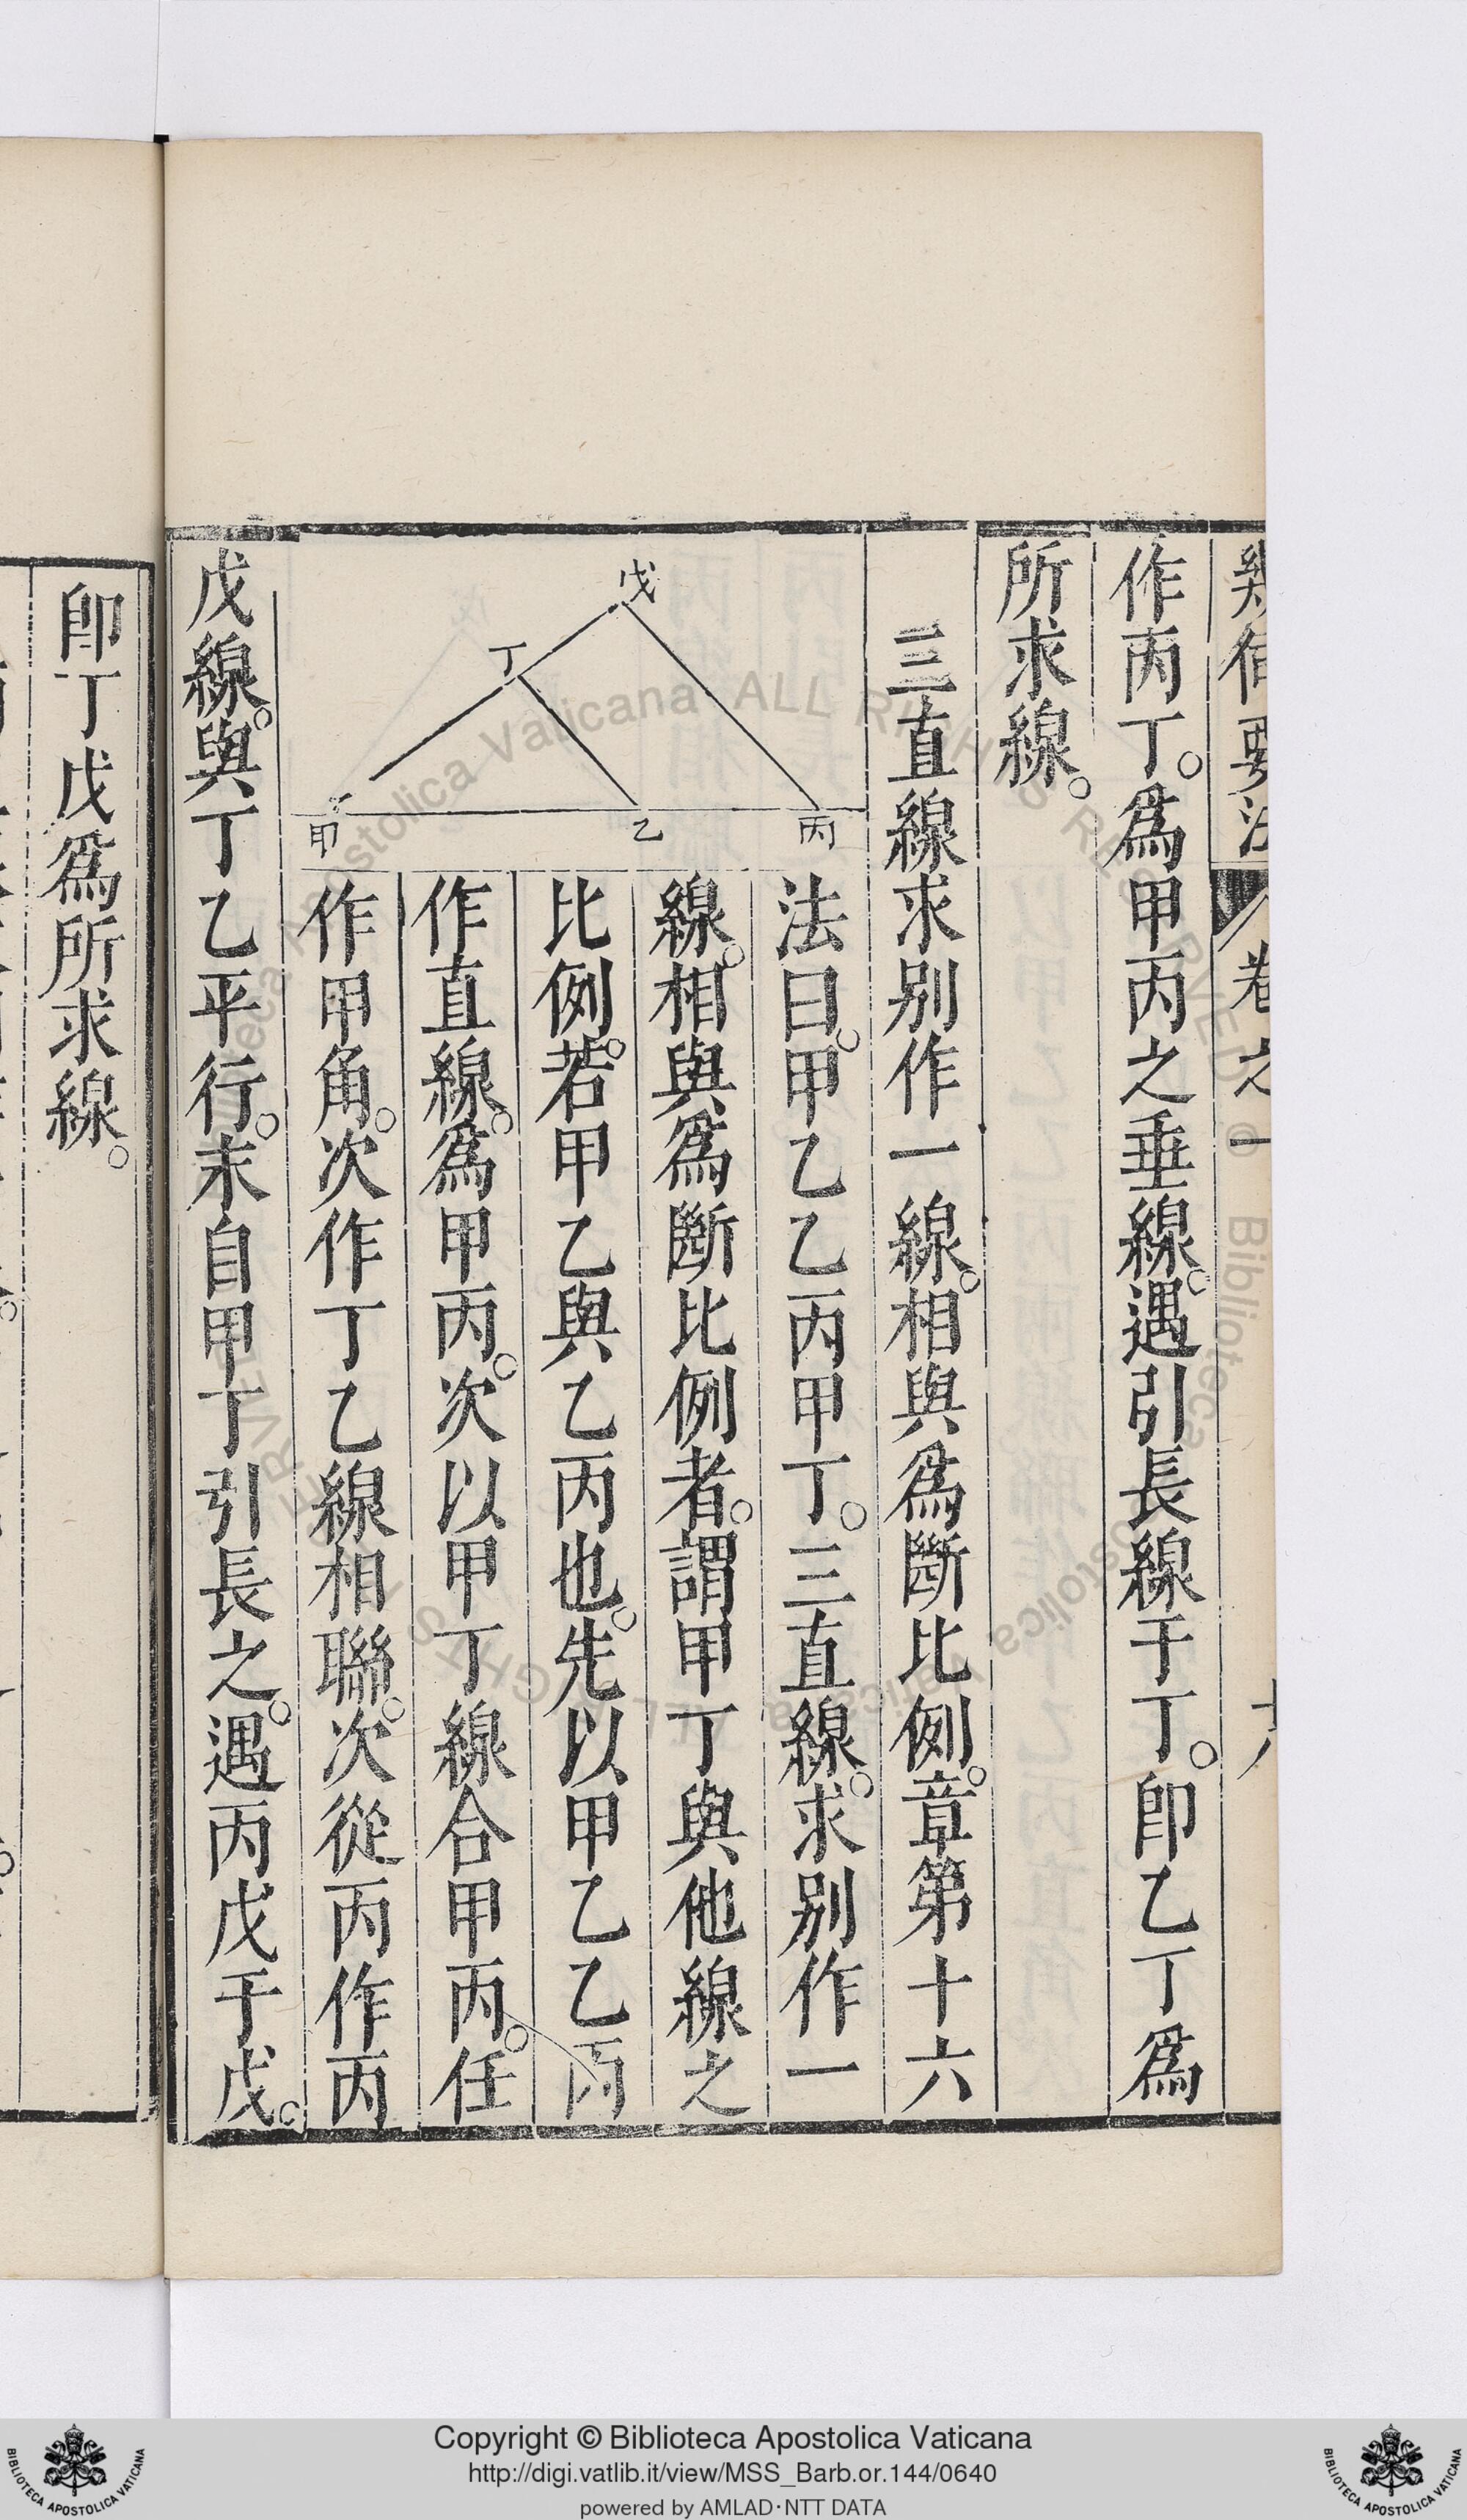 幾何要法 卷之一 十八
作丙丁。爲甲丙之垂線。遇引長線于丁。卽乙丁爲
所求線。
三直線求別作一線。相與爲斷比例。章第十六
戊
丁
甲
乙
丙
法曰。甲乙乙丙甲丁。三直線。求別作一
線。相與爲斷比例者。謂甲丁與他線之
比例。若甲乙與乙丙也。先以甲乙乙丙
作直線。爲甲丙。次以甲丁線合甲丙。任
作甲角。次作丁乙線相聯。次從丙作丙
戊線。與丁乙平行。末自甲丁引長之。遇丙戊于戊。
卽丁戊爲所求線。
Copyright © Biblioteca Apostolica Vaticana
http://digi.vatlib.it/view/MSS_Barb.or.144/0640
powered by AMLAD·NTT DATA
BIBLIOTECA APOSTOLICA VATICANA
BIBLIOTECA APOSTOLICA VATICANA